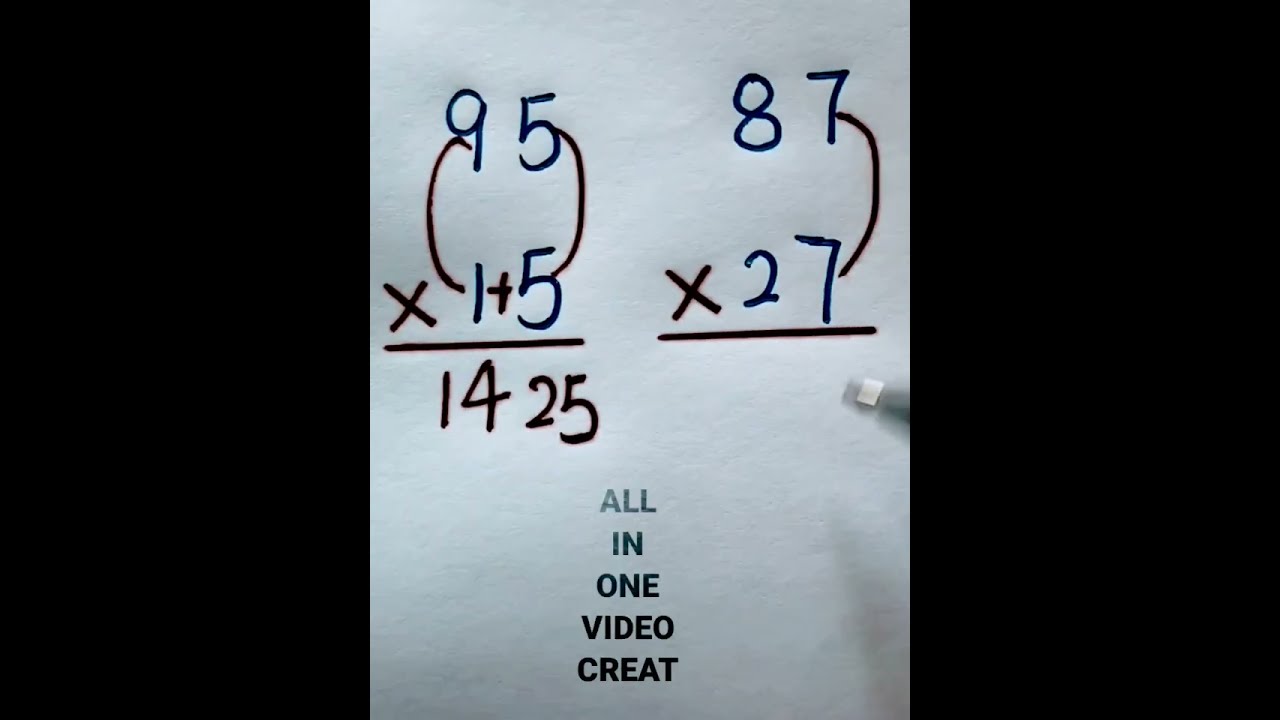 95
× 1+5
1425
87
× 27
ALL
IN
ONE
VIDEO
CREAT